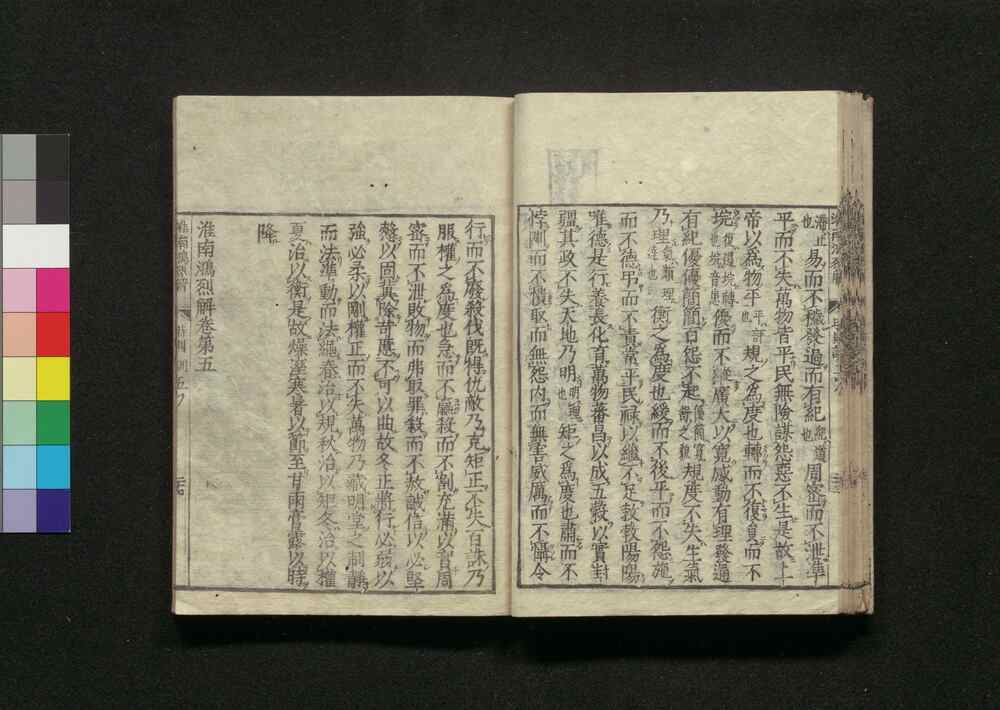 也易而不穢發過而有紀紀道也周密而不泄準
平而不失萬物皆平民無險謀怨惡不生是故上
帝以爲物平規之爲度也轉而不復員而不
垸優而不縱廣大以寬感動有理發通
有紀優優簡簡百怨不起規度不失生氣
乃理衡之爲度也緩而不後平而不怨施
而不德弔而不責當平民祿以繼不足敎敎陽陽
唯德是行養長化育萬物蕃昌以成五穀以實封
疆其政不失天地乃明矩之爲度也肅而不
悖剛而不憒取而無怨內而無害威厲而不懾令
行而不廢殺伐旣得仇敵乃克矩正不失百誅乃
服權之爲度也急而不贏殺而不割充滿以實周
密而不泄敗物而弗取罪殺而不赦誠信以必堅
慤以固糞除苛慝不可以曲故冬正將行必弱以
強必柔以剛權正而不失萬物乃藏明堂之制靜
而法準動而法繩春治以規秋治以矩冬治以權
夏治以衡是故燥溼寒暑以節至甘雨膏露以時
降
淮南鴻烈解卷第五